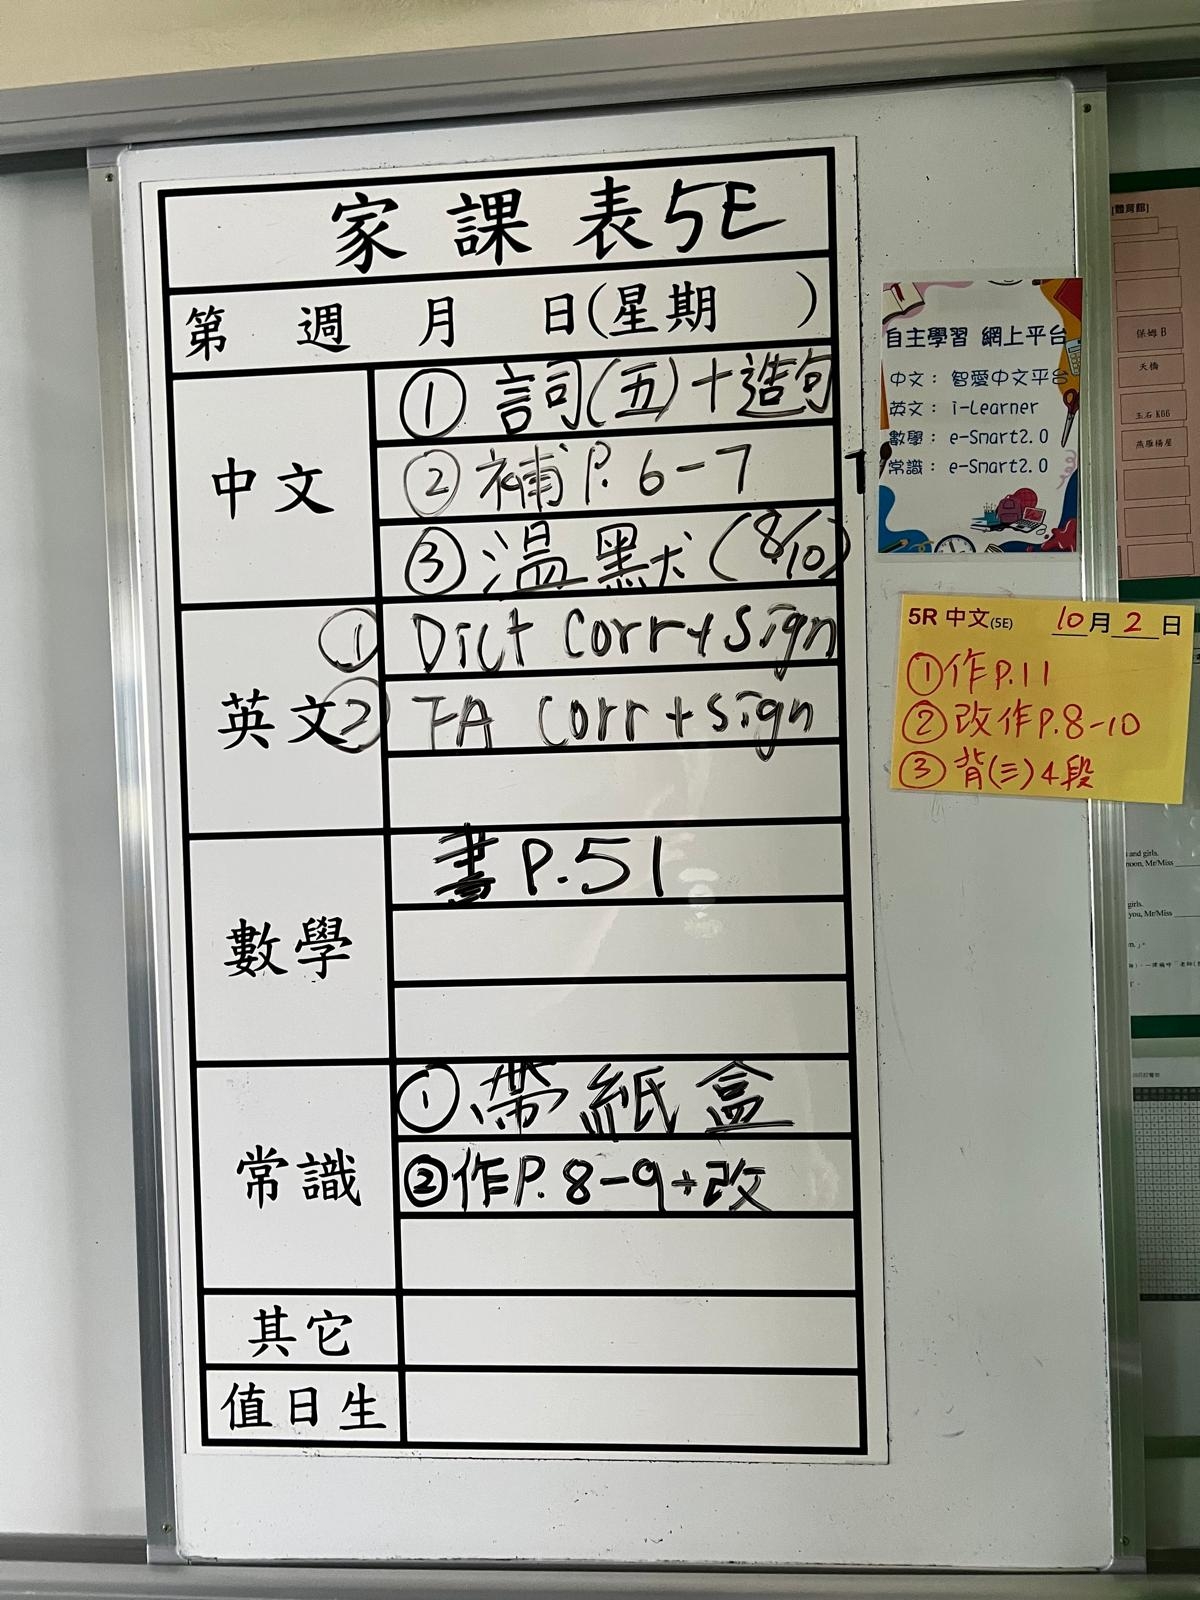 家課表5E
第 週 月 日(星期 )
中文
① 詞(五)+造句
② 補P.6-7
③ 溫默(8/10)
英文
① Dict Corr+sign
② FA Corr+sign
數學
書P.51
常識
① 帶紙盒
②作P.8-9+改
其它
值日生
自主學習 網上平台
中文: 智愛中文平台
英文: i-Learner
數學: e-Smart2.0
常識: e-Smart2.0
5R 中文(5E) 10月2日
①作P.11
②改作P.8-10
③背(三)4段
[體育館]
保姆B
天橋
玉石K66
燕雁楊屋
and girls.
noon, Mr/Miss
girls.
you, Mr/Miss